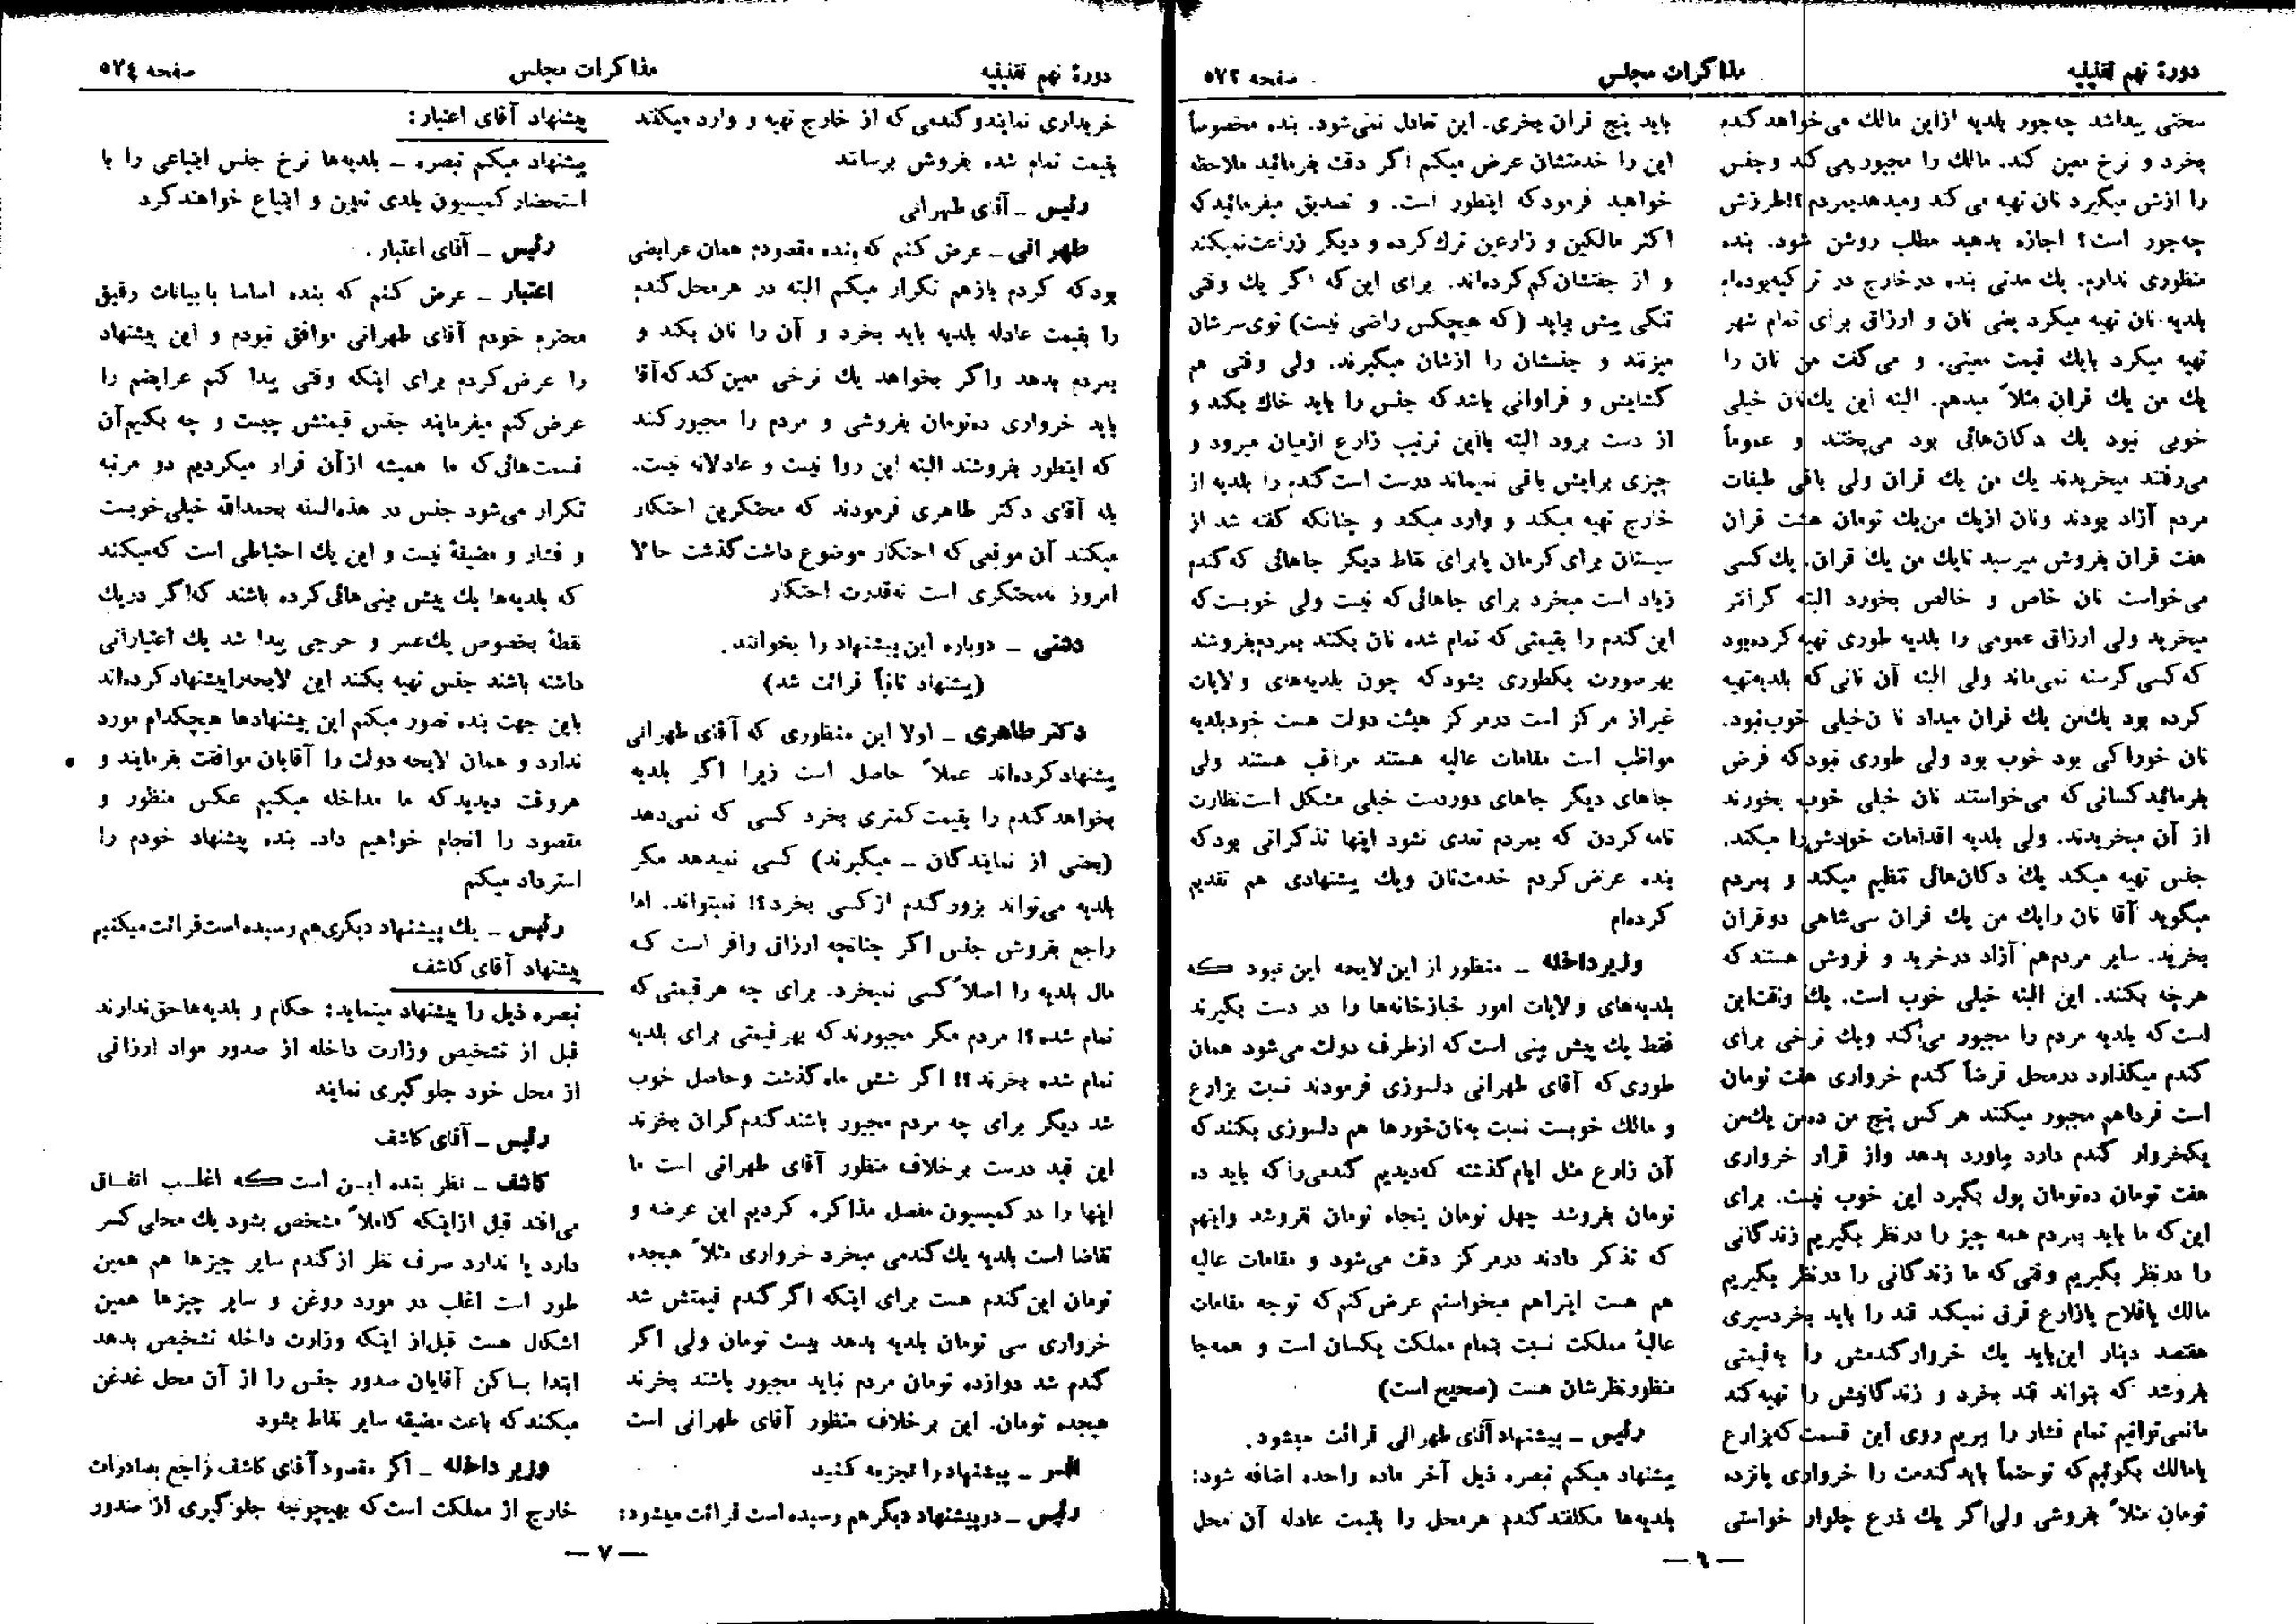 دورۀ نهم تقنینیه
مذاکرات مجلس
صفحه ۵۷۳
سختی پیداشد چه‌جور بلدیه ازاین مالك می‌خواهد گندم
بخرد و نرخ معین کند. مالك را مجبور می‌کند وجنس
را ازش میگیرد نان تهیه می‌کند ومیدهد بمردم؟! طرزش
چه‌جور است؟ اجازه بدهید مطلب روشن شود. بنده
منظوری ندارم. یك مدتی بنده درخارج در ترکیه بوده‌ام
بلدیه نان تهیه میکرد یعنی نان و ارزاق برای تمام شهر
تهیه میکرد بایك قیمت معینی. و می‌گفت من نان را
یك من یك قران مثلاً میدهم. البته این یك نان خیلی
خوبی نبود یك دکان‌هائی بود می‌پختند و عموماً
می‌رفتند میخریدند یك من یك قران ولی باقی طبقات
مردم آزاد بودند ونان ازیك من‌یك تومان هشت قران
هفت قران بفروش میرسید تایك من یك قران. یك کسی
می‌خواست نان خاص و خالص بخورد البته گرانتر
میخرید ولی ارزاق عمومی را بلدیه طوری تهیه کرده‌بود
که کسی گرسنه نمی‌ماند ولی البته آن نانی که بلدیه‌تهیه
کرده بود یك‌من یك قران میداد نان خیلی خوب‌نبود.
نان خوراکی بود خوب بود ولی طوری نبود که فرض
بفرمائید کسانی که می‌خواستند نان خیلی خوب بخورند
از آن میخریدند. ولی بلدیه اقدامات خودش را میکند.
جنس تهیه میکند یك دکان‌هائی تنظیم میکند و بمردم
میگوید آقا نان رایك من یك قران سی‌شاهی دوقران
بخرید. سایر مردم‌هم آزاد درخرید و فروش هستند که
هرچه بکنند. این البته خیلی خوب است. یك وقت‌این
است که بلدیه مردم را مجبور می‌کند ویك نرخی برای
گندم میگذارد درمحل فرضاً گندم خرواری هفت تومان
است فرداهم مجبور میکند هر کس پنج من ده‌من یك‌من
یکخروار گندم دارد بیاورد بدهد واز قرار خرواری
هفت تومان ده‌تومان پول بگیرد این خوب نیست. برای
این که ما باید بمردم همه چیز را درنظر بگیریم زندگانی
را درنظر بگیریم وقتی که ما زندگانی را درنظر بگیریم
مالك یافلاح یازارع فرق نمیکند قند را باید بخردسیری
هفتصد دینار این‌باید یك خروار گندمش را به‌قیمتی
بفروشد که بتواند قند بخرد و زندگانیش را تهیه کند
مانمی‌توانیم تمام فشار را ببریم روی این قسمت که‌بزارع
یامالك بگوئیم که توحتماً باید گندمت را خرواری پانزده
تومان مثلاً بفروشی ولی‌اگر یك ذرع چلوار خواستی
باید پنج قران بخری. این تعادل نمی‌شود. بنده مخصوصاً
این را خدمتشان عرض میکنم اگر دقت بفرمائید ملاحظه
خواهید فرمود که اینطور است. و تصدیق میفرمائید که
اکثر مالکین و زارعین ترك کرده و دیگر زراعت‌نمیکنند
و از جفتشان کم کرده‌اند. برای این که اگر یك وقتی
تنگی پیش بیاید (که هیچکس راضی نیست) توی‌سرشان
میزنند و جنسشان را ازشان میگیرند. ولی وقتی هم
گشایش و فراوانی باشد که جنس را باید خاك بکند و
از دست برود البته بااین ترتیب زارع ازمیان میرود و
چیزی برایش باقی نمیماند درست است گندم را بلدیه از
خارج تهیه میکند و وارد میکند و چنانکه گفته شد از
سیستان برای کرمان یابرای نقاط دیگر جاهائی که گندم
زیاد است میخرد برای جاهائی که نیست ولی خوبست که
این گندم را بقیمتی که تمام شده نان بکنند بمردم‌بفروشند
بهرصورت یکطوری بشود که چون بلدیه‌های ولایات
غیراز مرکز است درمرکز هیئت دولت هست خودبلدیه
مواظب است مقامات عالیه هستند مراقب هستند ولی
جاهای دیگر جاهای دوردست خیلی مشکل است‌نظارت
تامه کردن که بمردم تعدی نشود اینها تذکراتی بود که
بنده عرض کردم خدمت‌تان ویك پیشنهادی هم تقدیم
کرده‌ام
وزیرداخله ـ منظور از این لایحه این نبود که
بلدیه‌های ولایات امور خبازخانه‌ها را در دست بگیرند
فقط یك پیش بینی است که ازطرف دولت می‌شود همان
طوری که آقای طهرانی دلسوزی فرمودند نسبت بزارع
و مالك خوبست نسبت به‌نان‌خورها هم دلسوزی بکنند که
آن زارع مثل ایام گذشته که‌دیدیم گندمی‌را که باید ده
تومان بفروشد چهل تومان پنجاه تومان نفروشد واینهم
که تذکر دادند درمرکز دقت می‌شود و مقامات عالیه
هم هست اینراهم میخواستم عرض‌کنم که توجه مقامات
عالیۀ مملکت نسبت بتمام مملکت یکسان است و همه‌جا
منظورنظرشان هست (صحیح است)
رئیس ـ پیشنهاد آقای طهرانی قرائت میشود.
پیشنهاد میکنم تبصره ذیل آخر ماده واحده اضافه شود:
بلدیه‌ها مکلفند گندم هرمحل را بقیمت عادله آن محل
— ٦ —
دورۀ نهم تقنینیه
مذاکرات مجلس
صفحه ۵۷٤
خریداری نمایند و گندمی که از خارج تهیه و وارد میکنند
بقیمت تمام شده بفروش برسانند
رئیس ـ آقای طهرانی
طهرانی ـ عرض کنم که بنده مقصودم همان عرایضی
بود که کردم بازهم تکرار میکنم البته در هرمحل گندم
را بقیمت عادله بلدیه باید بخرد و آن را نان بکند و
بمردم بدهد واگر بخواهد یك نرخی معین کند که‌آقا
باید خرواری ده‌تومان بفروشی و مردم را مجبور کنند
که اینطور بفروشند البته این روا نیست و عادلانه نیست.
بله آقای دکتر طاهری فرمودند که محتکرین احتکار
میکنند آن موقعی که احتکار موضوع داشت گذشت حالا
امروز نه‌محتکری است نه‌قدرت احتکار
دشتی ـ دوباره این پیشنهاد را بخوانند.
(پیشنهاد ثانیاً قرائت شد)
دکتر طاهری ـ اولا این منظوری که آقای طهرانی
پیشنهاد کرده‌اند عملاً حاصل است زیرا اگر بلدیه
بخواهد گندم را بقیمت کمتری بخرد کسی که نمی‌دهد
(بعضی از نمایندگان ـ میگیرند) کسی نمیدهد مگر
بلدیه می‌تواند بزور گندم از کسی بخرد؟! نمیتواند. اما
راجع بفروش جنس اگر چنانچه ارزاق وافر است که
مال بلدیه را اصلاً کسی نمیخرد. برای چه هرقیمتی که
تمام شده؟! مردم مگر مجبورند که بهرقیمتی برای بلدیه
تمام شده بخرند؟! اگر شش ماه گذشت وحاصل خوب
شد دیگر برای چه مردم مجبور باشند گندم گران بخرند
این قید درست برخلاف منظور آقای طهرانی است ما
اینها را در کمیسیون مفصل مذاکره کردیم این عرضه و
تقاضا است بلدیه یك گندمی میخرد خرواری مثلاً هیجده
تومان این گندم هست برای اینکه اگر گندم قیمتش شد
خرواری سی تومان بلدیه بدهد بیست تومان ولی اگر
گندم شد دوازده تومان مردم نباید مجبور باشند بخرند
هیجده تومان. این برخلاف منظور آقای طهرانی است
افسر ـ پیشنهاد را تجزیه کنید
رئیس ـ دوپیشنهاد دیگرهم رسیده است قرائت میشود:
پیشنهاد آقای اعتبار:
پیشنهاد میکنم تبصره ـ بلدیه‌ها نرخ جنس ابتیاعی را با
استحضار کمیسیون بلدی تعیین و ابتیاع خواهند کرد
رئیس ـ آقای اعتبار.
اعتبار ـ عرض کنم که بنده اساسا با بیانات رفیق
محترم خودم آقای طهرانی موافق نبودم و این پیشنهاد
را عرض‌کردم برای اینکه وقتی پیدا کنم عرایضم را
عرض‌کنم میفرمایند جنس قیمتش چیست و چه بکنیم‌آن
قسمت‌هائی که ما همیشه ازآن فرار میکردیم دو مرتبه
تکرار می‌شود جنس در هذه‌السنه بحمدالله خیلی‌خوبست
و فشار و مضیقۀ نیست و این یك احتیاطی است که‌میکنند
که بلدیه‌ها یك پیش بینی‌هائی کرده باشند که‌اگر دریك
نقطۀ بخصوص یك‌عسر و حرجی پیدا شد یك اعتباراتی
داشته باشند جنس تهیه بکنند این لایحه‌راپیشنهاد کرده‌اند
باین جهت بنده تصور میکنم این پیشنهادها هیچکدام مورد
ندارد و همان لایحه دولت را آقایان موافقت بفرمایند و
هروقت دیدید که ما مداخله میکنیم عکس منظور و
مقصود را انجام خواهیم داد. بنده پیشنهاد خودم را
استرداد میکنم
رئیس ـ یك پیشنهاد دیگری‌هم رسیده است قرائت میکنیم
پیشنهاد آقای کاشف
تبصره ذیل را پیشنهاد مینماید: حکام و بلدیه‌ها حق ندارند
قبل از تشخیص وزارت داخله از صدور مواد ارزاقی
از محل خود جلوگیری نمایند
رئیس ـ آقای کاشف
کاشف ـ نظر بنده این است که اغلب اتفاق
می‌افتد قبل ازاینکه کاملاً مشخص بشود یك محلی کسر
دارد یا ندارد صرف نظر از گندم سایر چیزها هم همین
طور است اغلب در مورد روغن و سایر چیزها همین
اشکال هست قبل‌از اینکه وزارت داخله تشخیص بدهد
ابتدا بساکن آقایان صدور جنس را از آن محل غدغن
میکنند که باعث مضیقه سایر نقاط بشود
وزیر داخله ـ اگر مقصود آقای کاشف راجع بصادرات
خارج از مملکت است که بهیچوجه جلوگیری از صدور
— ۷ —